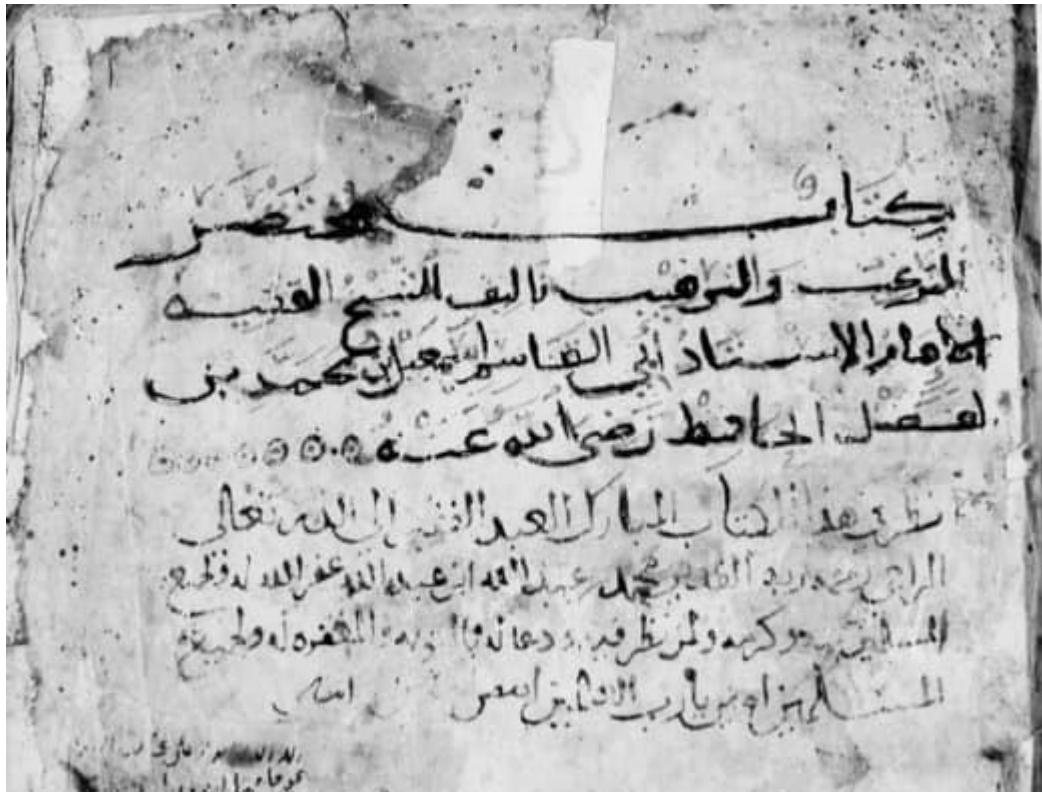 كتاب مختصر
الترغيب والترهيب تاليف الشيخ الفقيه
الامام الاستاذ ابي القاسم اسمعيل بن محمد بن
الفضل الحافظ رضي الله عنه
نظر في هذا الكتاب المبارك العبد الفقير الى الله تعالى
الراجي رحمة ربه محمد عبد الله ابن عبد الله غفر الله له ولجميع
المسلمين وكرمه ولمن نظر فيه ودعا له والمغفره له ولجميع
المسلمين امين يا رب العالمين امين